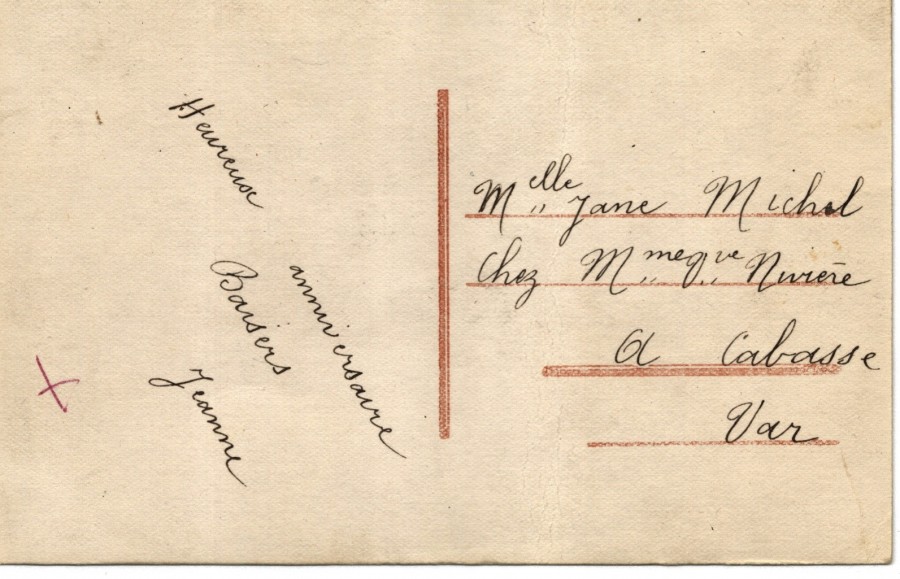 Heureuse
anniversaire
Baisers
Jeanne
Melle Jane Michel
Chez Mme Vve Nivière
A Cabasse
Var